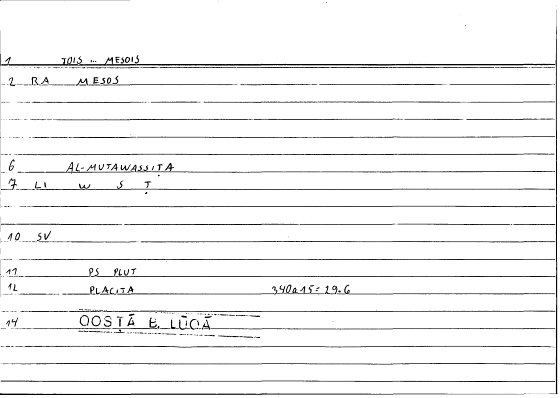 1 TOIS ... MESOIS
2 RA MESOS
6 AL-MUTAWASSIṬA
7 LI W S Ṭ
10 SV
11 PS PLUT
12 PLACITA 340a15 = 29.6
14 QOSṬĀ B. LŪQĀ